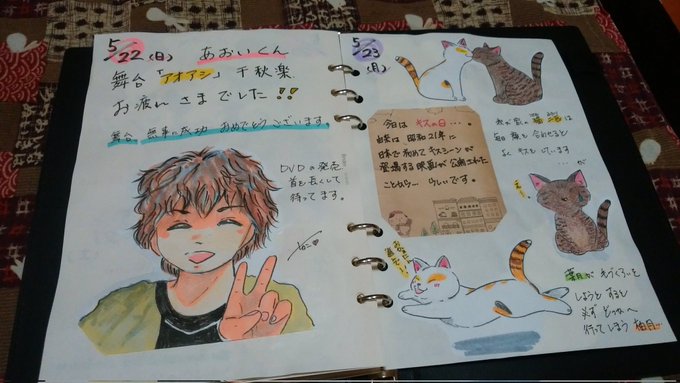 5/22(日) あおいくん
舞台「アオアシ」千秋楽
お疲れさまでした!!
舞台 無事に成功 おめでとうございます
DVDの発売
首を長くして
待ってます。
5/23
(月)
今日は キスの日…。
由来は 昭和21年に
日本で初めて キスシーンが
登場する映画が公開された
ことから… らしいです。
我が家の
毎朝 顔を合わせると
よく キスを しています
…が
葉月が 毛づくろいを
しようと すると
必ず どっかへ
行ってしまう 柚月…